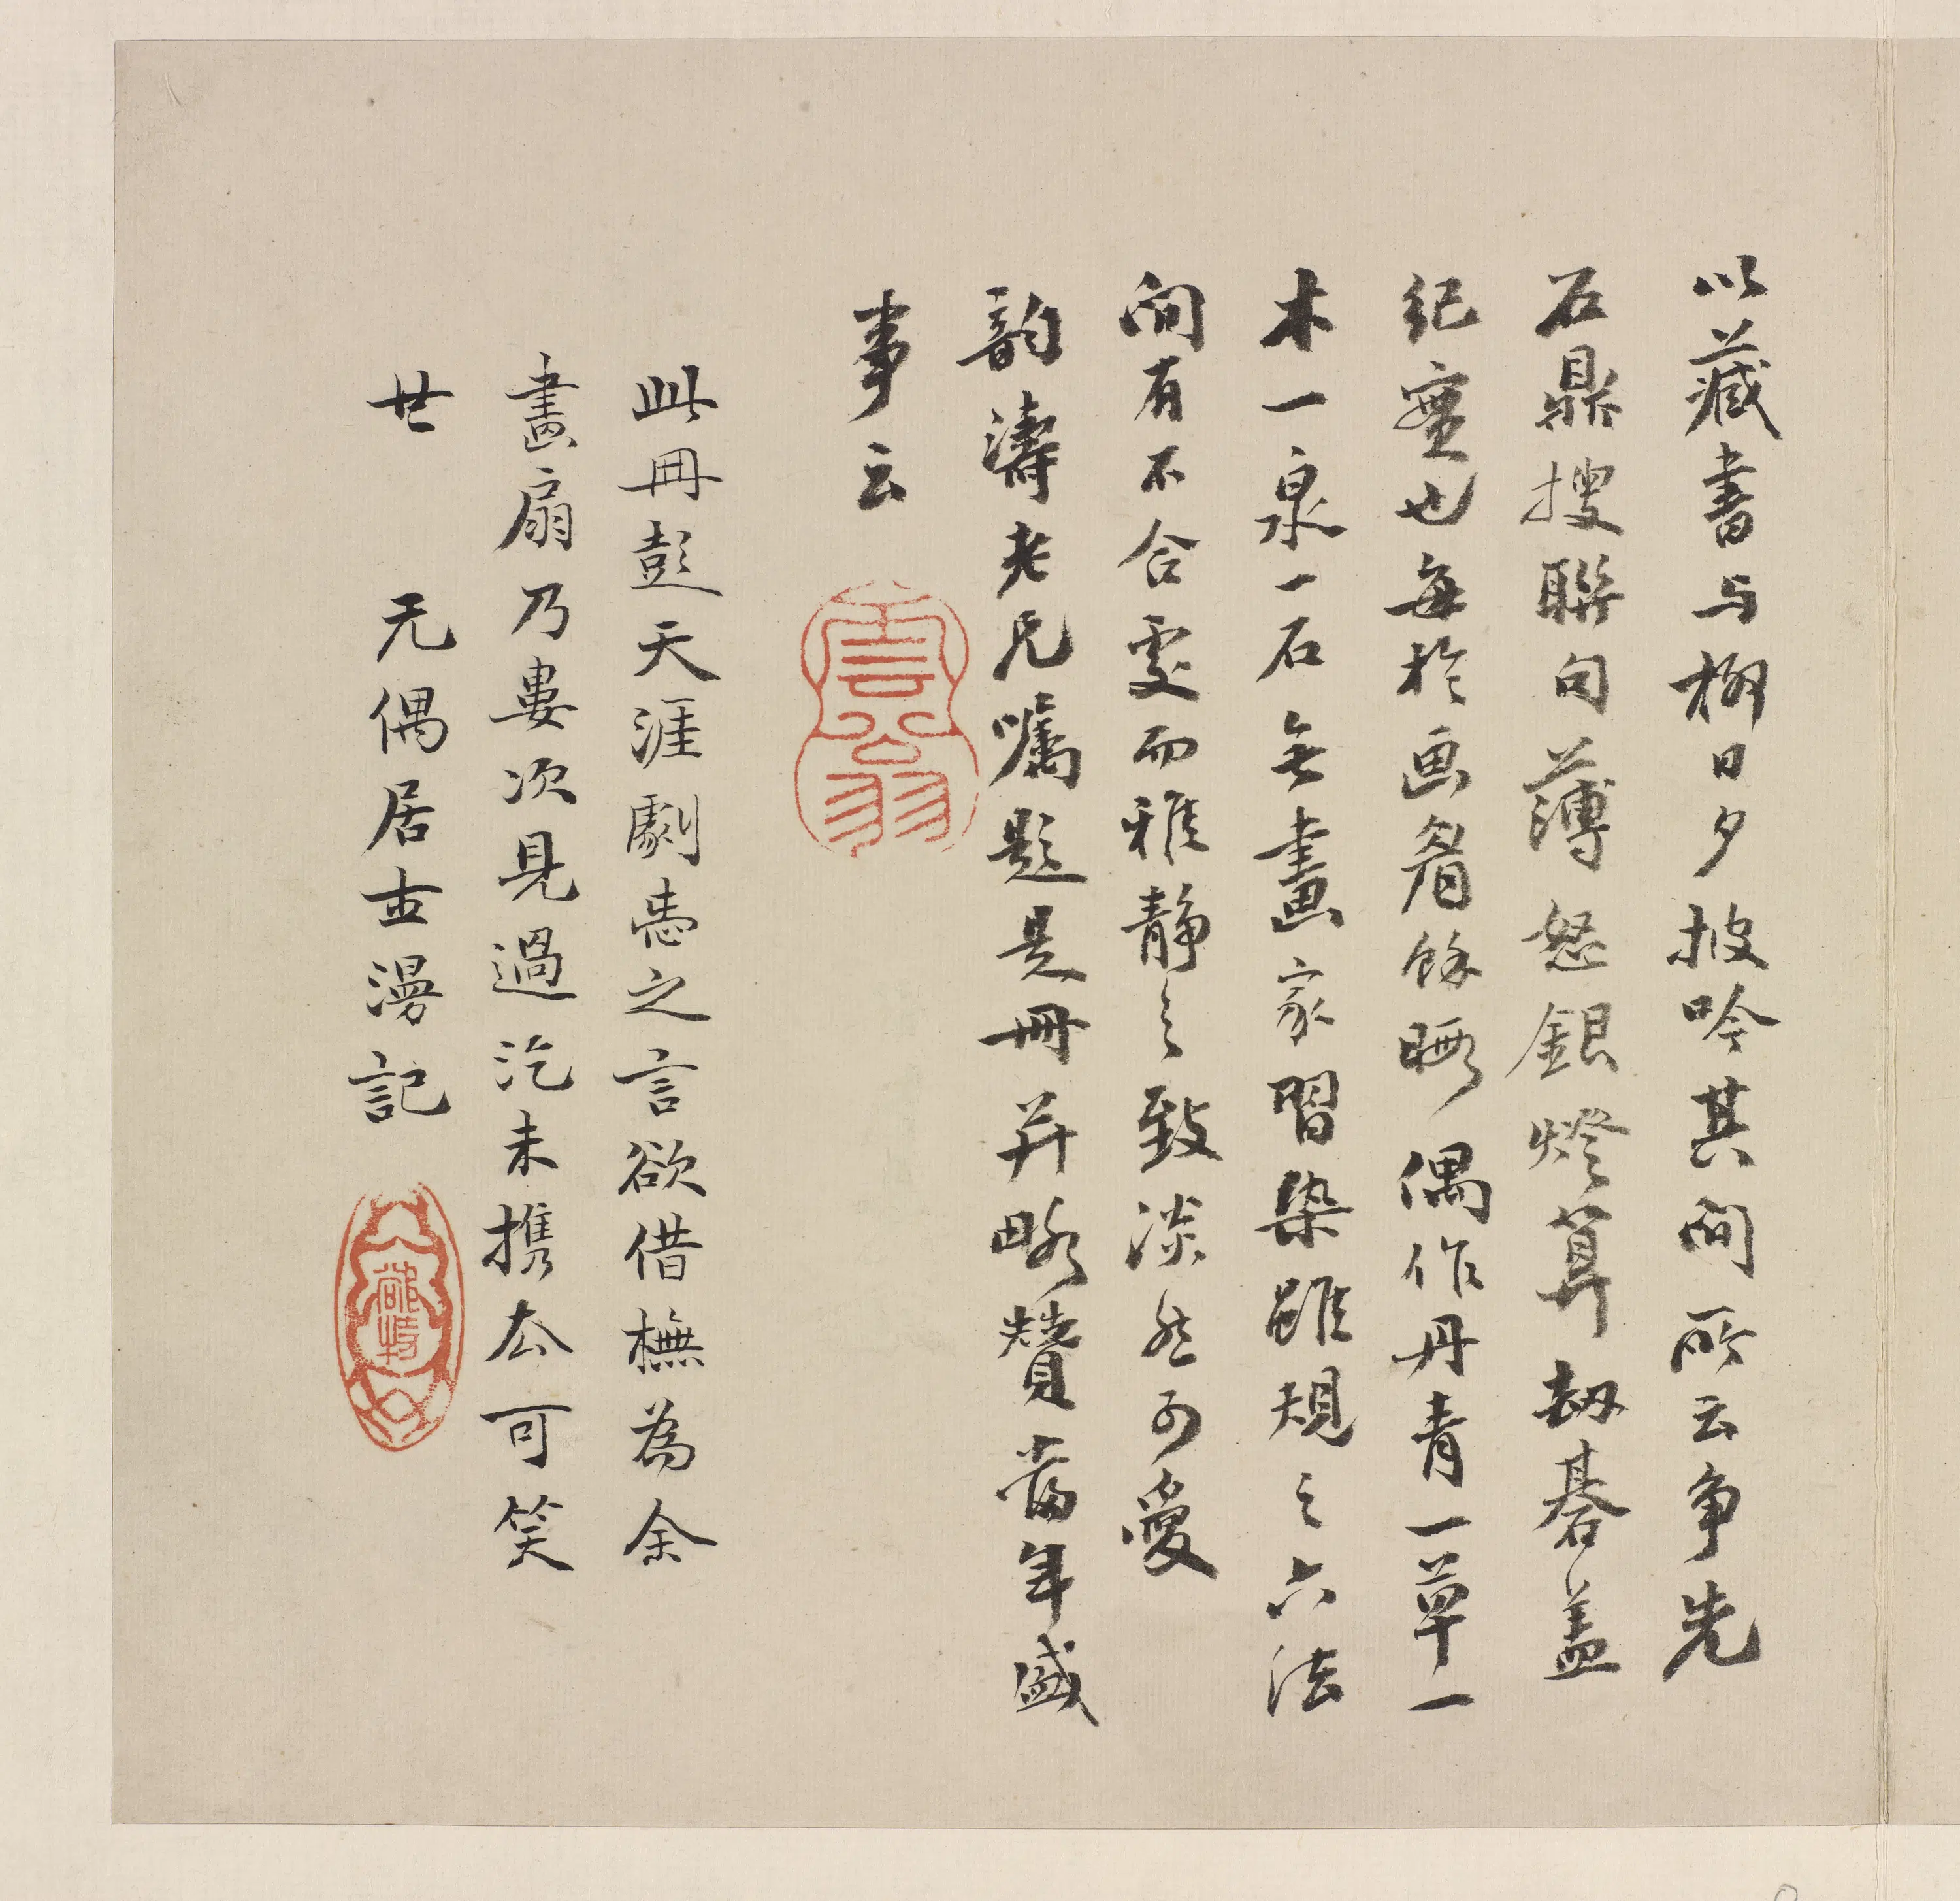 以藏書与柳日夕披吟其间所云争先
石鼎搜聯句薄怒銀燈算劫碁盖
纪實也每於画眉餘暇偶作丹青一草一
木一泉一石無畫家習染雖規之六法
间有不合處而雅静之致淡然可愛
韵濤老兄嘱题是冊并略賛當年盛
事云
雲翁
此冊彭天涯劇恚之言欲借橅為余
畫扇乃婁次見過汔未携厺可笑
廿 无偶居士漫記